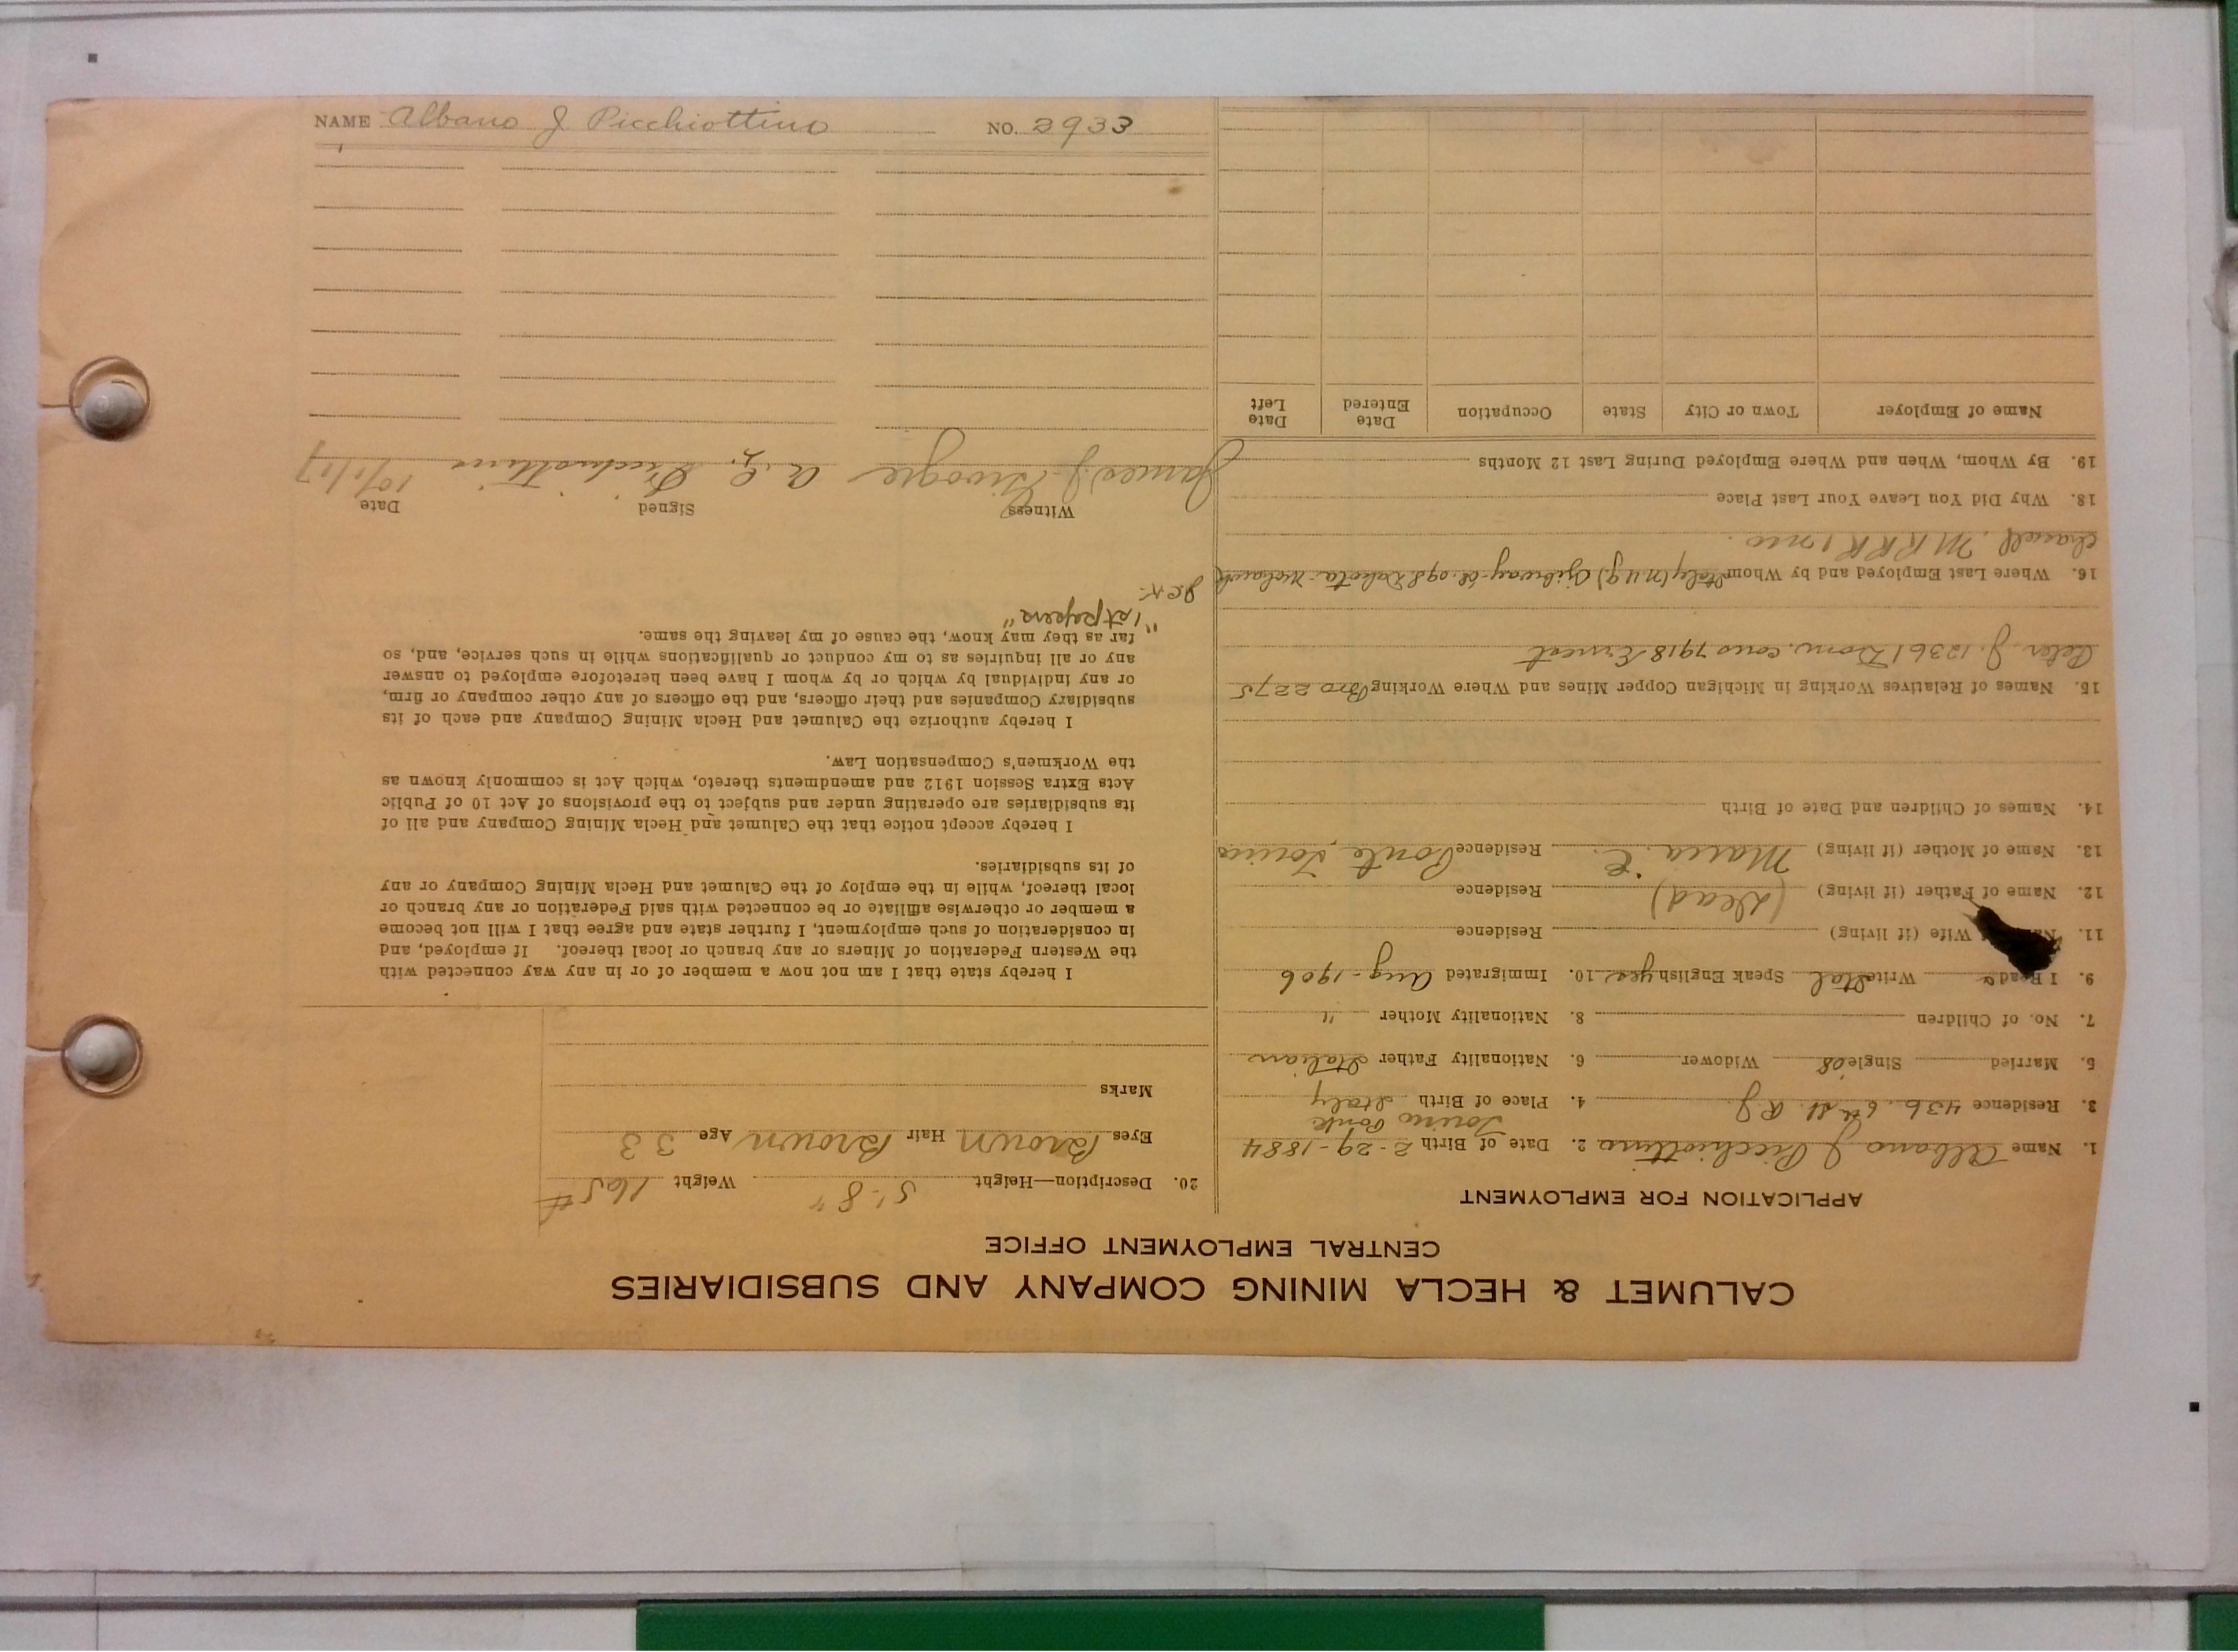 NAME Albano J Picchiottino NO. 2933
CALUMET & HECLA MINING COMPANY AND SUBSIDIARIES
CENTRAL EMPLOYMENT OFFICE
APPLICATION FOR EMPLOYMENT
1. Name Albano J Picchiottino 2. Date of Birth 2-29-1884
Torino Ponte
3. Residence 436 6th St. R.J. 4. Place of Birth Italy
5. Married Single Widower 6. Nationality Father Italian
7. No. of Children 8. Nationality Mother "
9. I Read Write Ital Speak English yes 10. Immigrated Aug-1906
11. Wife (if living) Residence
12. Name of Father (if living) (Dead) Residence
13. Name of Mother (if living) Maria C. Residence Ponte, Torino
14. Names of Children and Date of Birth
15. Names of Relatives Working in Michigan Copper Mines and Where Working Bro 2275
Peter J. 12361 Dom. 7918 Ernest
16. Where Last Employed and by Whom Italy Ojibway Dakota
M R R R 1 mo.
18. Why Did You Leave Your Last Place
19. By Whom, When and Where Employed During Last 12 Months
Name of Employer Town or City State Occupation Date Entered Date Left
20. Description—Height 5'-8" Weight 165#
Eyes Brown Hair Brown Age 33
Marks
I hereby state that I am not now a member of or in any way connected with
the Western Federation of Miners or any branch or local thereof. If employed, and
in consideration of such employment, I further state and agree that I will not become
a member or otherwise affiliate or be connected with said Federation or any branch or
local thereof, while in the employ of the Calumet and Hecla Mining Company or any
of its subsidiaries.
I hereby accept notice that the Calumet and Hecla Mining Company and all of
its subsidiaries are operating under and subject to the provisions of Act 10 of Public
Acts Extra Session 1912 and amendments thereto, which Act is commonly known as
the Workmen's Compensation Law.
I hereby authorize the Calumet and Hecla Mining Company and each of its
subsidiary Companies and their officers, and the officers of any other company or firm,
or any individual by which or by whom I have been heretofore employed to answer
any or all inquiries as to my conduct or qualifications while in such service, and, so
far as they may know, the cause of my leaving the same.
"1st papers"
Witness Signed Date
James J. A. J. Picchiottino 10/1/17